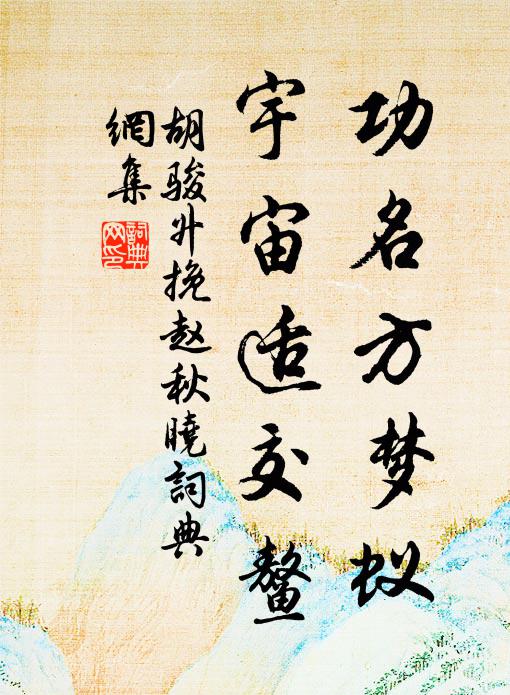 功名方梦蚁
宇宙适交鳌
胡骏升挽赵秋晓詞典
網集
詞典网印